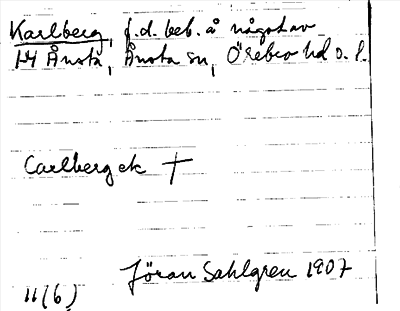 Karlberg, f.d. beb. å något av
1-4 Ånsta, Ånsta sn, Örebro hd o. l.
Carlberg ek †
Jöran Sahlgren 1907
11(6)